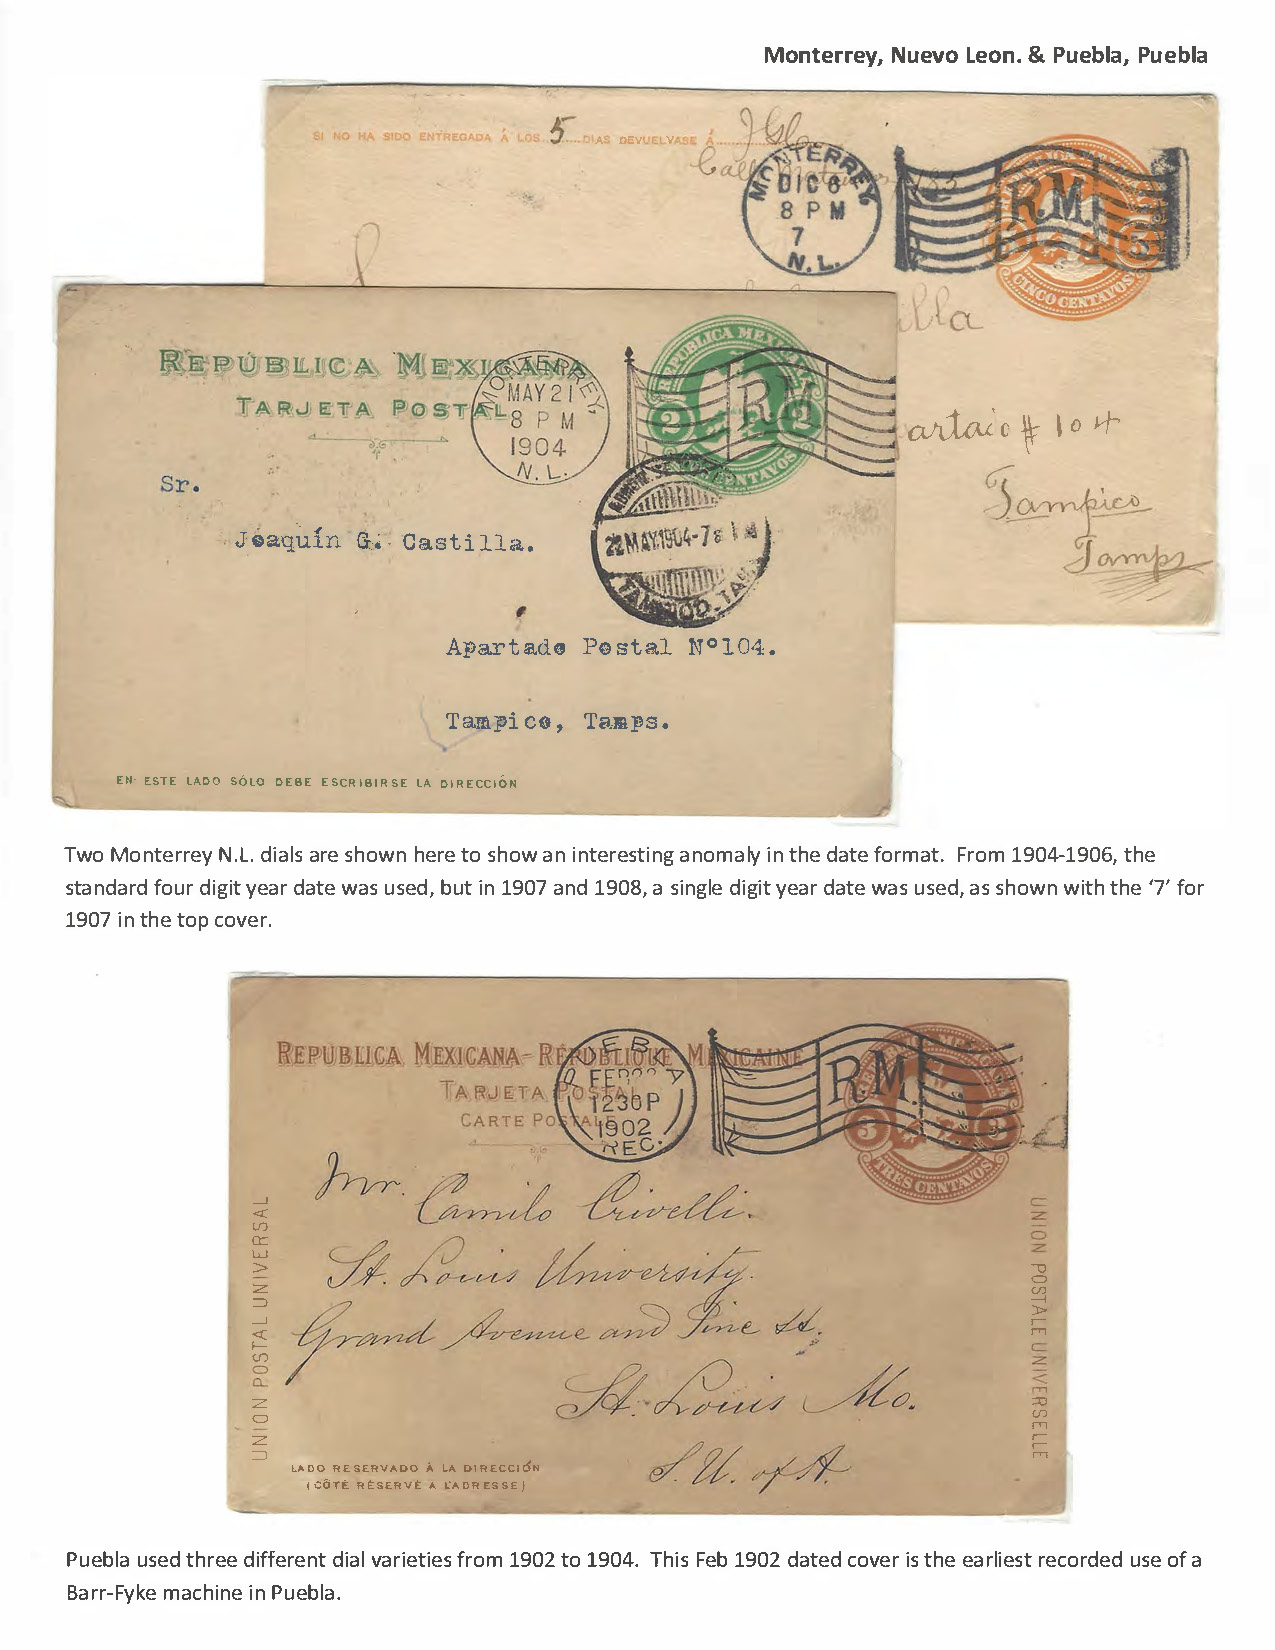 Monterrey, Nuevo Leon. & Puebla, Puebla
SI NO HA SIDO ENTREGADA Á LOS 5 DIAS DEVUELVASE Á
MONTERREY,
DIC 6
8 P M
7
N. L.
R.M.
5 5
CINCO CENTAVOS
artado # 104
Tampico
Tamps
REPÚBLICA MEXICANA
TARJETA POSTAL
MONTERREY,
MAY 21
8 P M
1904
N. L.
R.M
REPUBLICA MEXICANA
2 2
CENTAVOS
Sr.
Joaquín G. Castilla.
22 MAY.1904-7
TAMPICO.TAM.
Apartado Postal Nº104.
Tampico, Tamps.
EN ESTE LADO SÓLO DEBE ESCRIBIRSE LA DIRECCIÓN
Two Monterrey N.L. dials are shown here to show an interesting anomaly in the date format. From 1904-1906, the
standard four digit year date was used, but in 1907 and 1908, a single digit year date was used, as shown with the ‘7’ for
1907 in the top cover.
REPUBLICA MEXICANA-RÉPUBLIQUE MEXICAINE
TARJETA POSTAL
CARTE POSTALE
PUEBLA
FEB
1230P
1902
REC.
R.M.
3 3
TRES CENTAVOS
Mr. Camilo Crivelli.
St. Louis University.
Grand Avenue and Pine St.
St. Louis Mo.
S. U. of A.
UNION POSTAL UNIVERSAL
UNION POSTALE UNIVERSELLE
LADO RESERVADO À LA DIRECCIÓN
(CÔTÉ RÉSERVÉ A L'ADRESSE)
Puebla used three different dial varieties from 1902 to 1904. This Feb 1902 dated cover is the earliest recorded use of a
Barr-Fyke machine in Puebla.